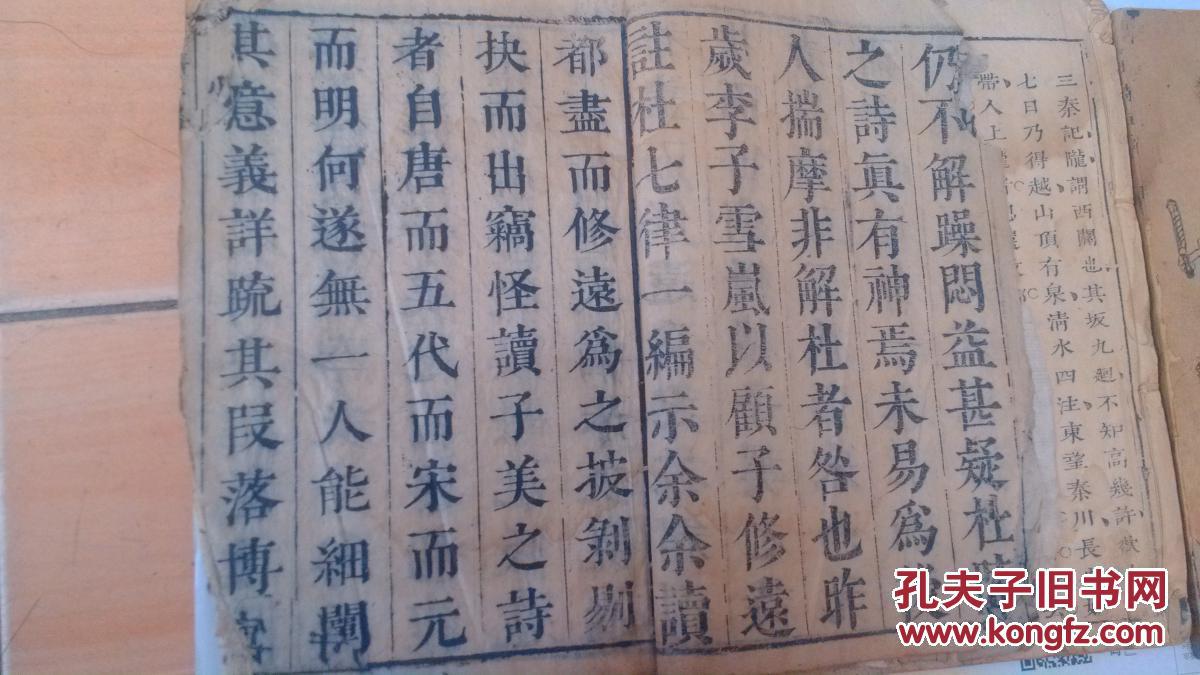 三秦記隴謂西關也其坂九廻不知高幾許欲
七日乃得越山頂有泉清水四注東望秦川長
帶人上
仍不解躁悶益甚疑杜
之詩眞有神焉未易爲
人揣摩非解杜者咎也昨
歲李子雪嵐以顧子修遠
註杜七律一編示余余讀
都盡而修遠爲之披剝剔
抉而出竊怪讀子美之詩
者自唐而五代而宋而元
而明何遂無一人能細闡
其意義詳疏其段落博
孔夫子旧书网
www.kongfz.com